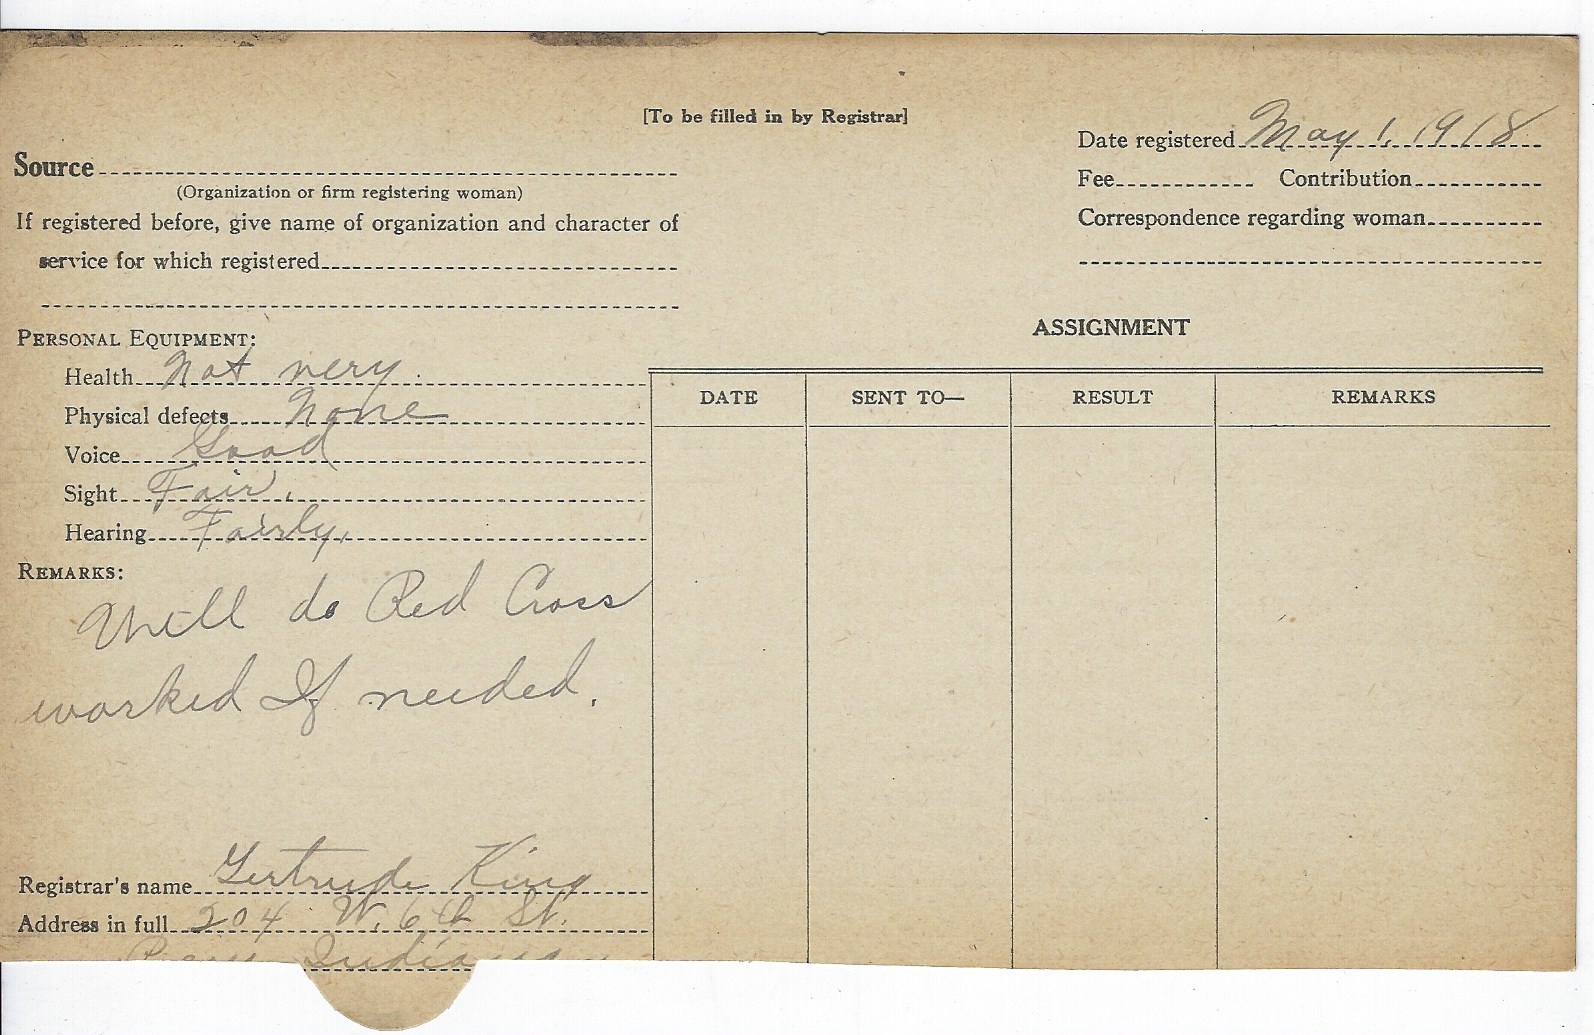 [To be filled in by Registrar]
Date registered May 1, 1918
Source
(Organization or firm registering woman)
Fee Contribution
If registered before, give name of organization and character of
Correspondence regarding woman
service for which registered
PERSONAL EQUIPMENT:
ASSIGNMENT
Health Not very.
DATE SENT TO— RESULT REMARKS
Physical defects None
Voice Good
Sight Fair.
Hearing Fairly.
REMARKS:
Will do Red Cross
worked If needed.
Registrar's name Gertrude King
Address in full 204 W. 6th St.
Peru Indiana